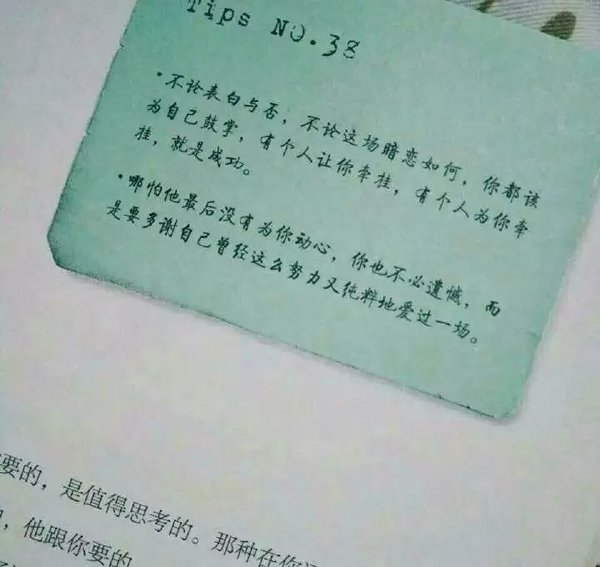 Tips NO.38
·不论表白与否，不论这场暗恋如何，你都该
为自己鼓掌，有个人让你牵挂，有个人为你牵
挂，就是成功。
·哪怕他最后没有为你动心，你也不必遗憾，而
是要多谢自己曾经这么努力又纯粹地爱过一场。
要的，是值得思考的。那种在你
，他跟你要的